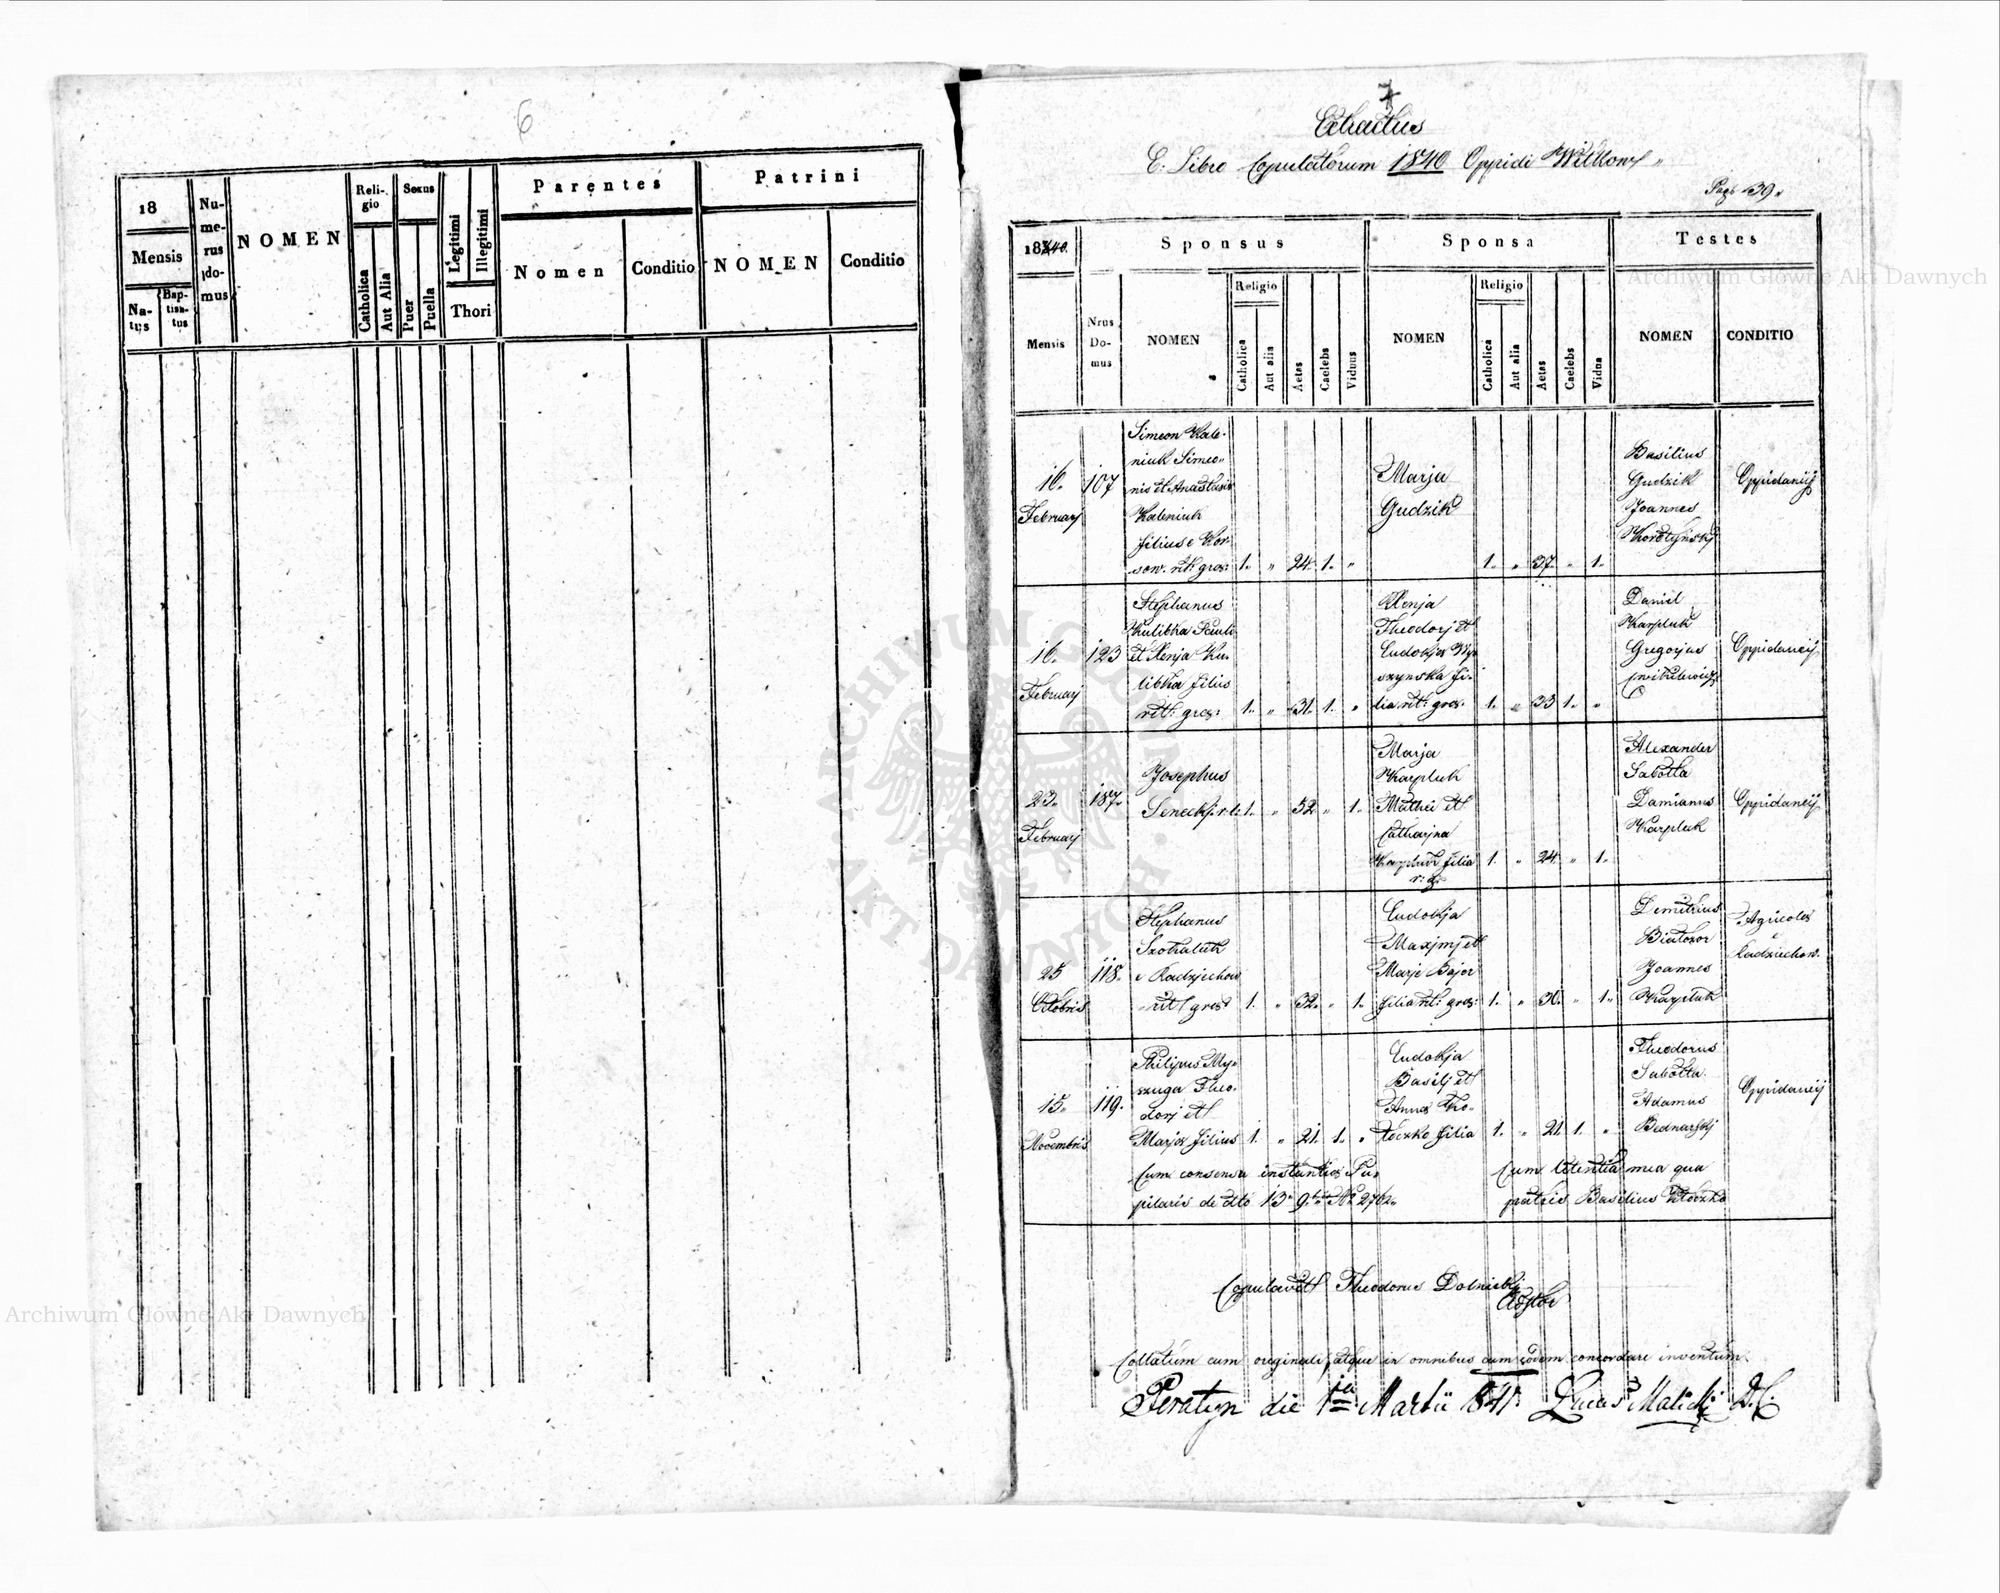 6
18
Mensis
Na-
tus
Bap-
tisa-
tus
Nu-
me-
rus
do-
mus
NOMEN
Reli-
gio
Catholica
Aut Alia
Sexus
Puer
Puella
Legitimi
Illegitimi
Thori
Parentes
Nomen
Conditio
Patrini
NOMEN
Conditio
7
Extractus
E. Libro Copulatorum 1840 Oppidi Witkow
Pag. 39.
1840.
Mensis
Sponsus
Nrus
Do-
mus
NOMEN
Religio
Catholica
Aut alia
Aetas
Caelebs
Viduus
Sponsa
NOMEN
Religio
Catholica
Aut alia
Aetas
Caelebs
Vidua
Testes
NOMEN
CONDITIO
16.
February
107
Simeon Kale-
niuk Simeo-
nis et Anastasia
Kaleniuk
filius e Kor-
sow. rit: gres:
1. " 24. 1. "
Marja
Gudzik
1. " 37. " 1.
Basilius
Gudzik
Joannes
Korotynsky
Oppidaneij
16.
February
123
Stephanus
Kulibka
et Xenja Ku-
libka filius
rit: gres:
1. " 31. 1. "
Xenja
Theodorj et
Eudokja Wy-
szynska fi-
lia rit: gres:
1. " 33 1. "
Daniel
Karpluk
Gregorjus
Oppidaneij
23.
February
187.
Josephus
Seneckj. r. l.
1. " 52 " 1.
Marja
Karpluk
Mathei et
Catharjna
Karpluk filia
r: g:
1. " 24. " 1.
Alexander
Sabotta
Damianus
Karpluk
Oppidaneij
25
Octobris
118.
Stephanus
e Radzjechow
rit gres:
1. " 32. " 1.
Eudokja
Maxjmj et
Marje Bojor
filia rit: gres:
1. " 30. " 1.
Demetrius
Bialozor
Joannes
Karpluk
Agricolae
e
Radziechow.
15.
Novembris
119.
Philipus My-
szuga Theo-
dorj et
Marja filius
1. " 21. 1. "
Eudokja
Basilj et
Anna Klo-
toczko filia
1. " 21. 1. "
Theodorus
Sabotta.
Adamus
Bednarskj
Oppidaneij
Cum consensu instantiae Pu-
pilaris de dto 13 9bris No 2762.
Cum licentia mea qua
patris Basilius
Copulavit Theodorus Dolnickj
Collatum cum originali, atque in omnibus cum eodem concordare inventum.
Peratyn die 1ma Martii 1841. Lucas Malicki D.C.
Archiwum Główne Akt Dawnych
Archiwum Główne Akt Dawnych
ARCHIWUM GŁÓWNE AKT DAWNYCH